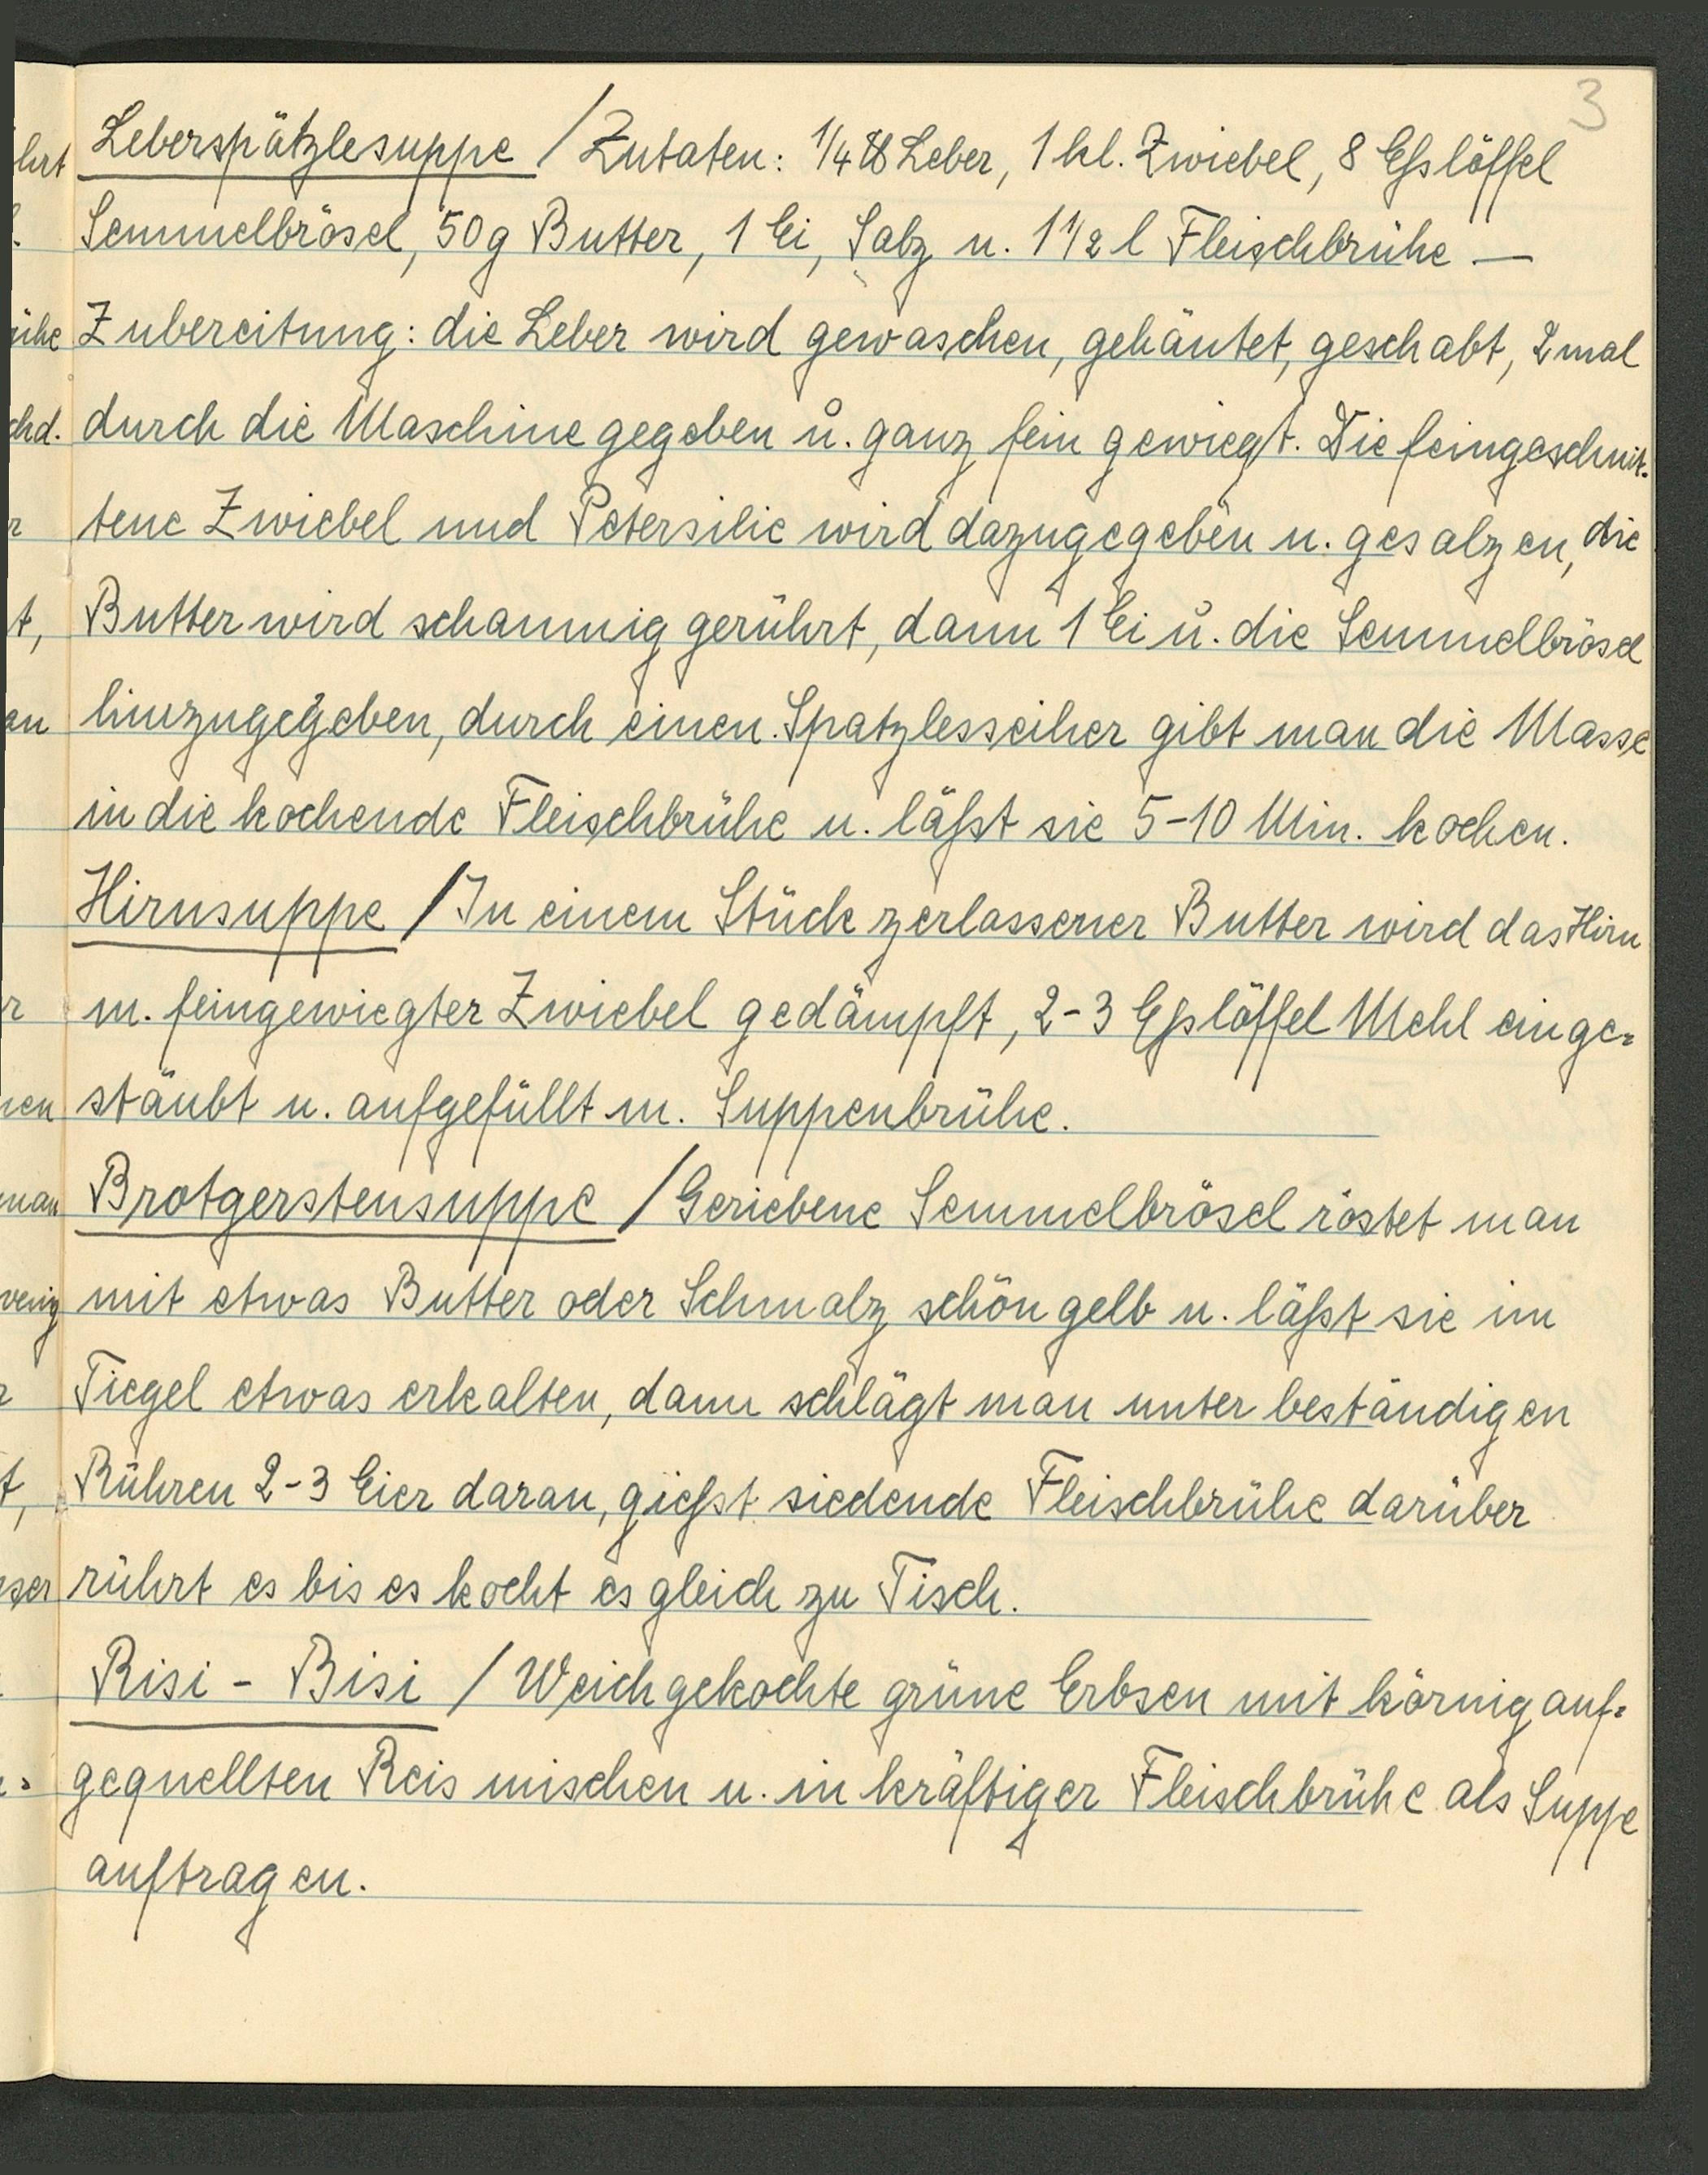 3
Leberspätzlesuppe / Zutaten: 1/4 ℔ Leber, 1 kl. Zwiebel, 8 Eßlöffel
Semmelbrösel, 50g Butter, 1 Ei, Salz u. 1 1/2 l Fleischbrühe —
Zubereitung: die Leber wird gewaschen, gehäutet, geschabt, 2 mal
durch die Maschine gegeben u. ganz fein gewiegt. Die feingeschnit-
tene Zwiebel und Petersilie wird dazugegeben u. gesalzen, die
Butter wird schaumig gerührt, dann 1 Ei u. die Semmelbrösel
hinzugegeben, durch einen Spatzlesseiher gibt man die Masse
in die kochende Fleischbrühe u. läßt sie 5-10 Min. kochen.
Hirnsuppe / In einem Stück zerlassener Butter wird das Hirn
m. feingewiegter Zwiebel gedämpft, 2-3 Eßlöffel Mehl einge-
stäubt u. aufgefüllt m. Suppenbrühe.
Brotgerstensuppe / Geriebene Semmelbrösel röstet man
mit etwas Butter oder Schmalz schön gelb u. läßt sie im
Tiegel etwas erkalten, dann schlägt man unter beständigen
Rühren 2-3 Eier daran, gießt siedende Fleischbrühe darüber
rührt es bis es kocht es gleich zu Tisch.
Risi - Bisi / Weichgekochte grüne Erbsen mit körnig auf-
gequellten Reis mischen u. in kräftiger Fleischbrühe als Suppe
auftragen.